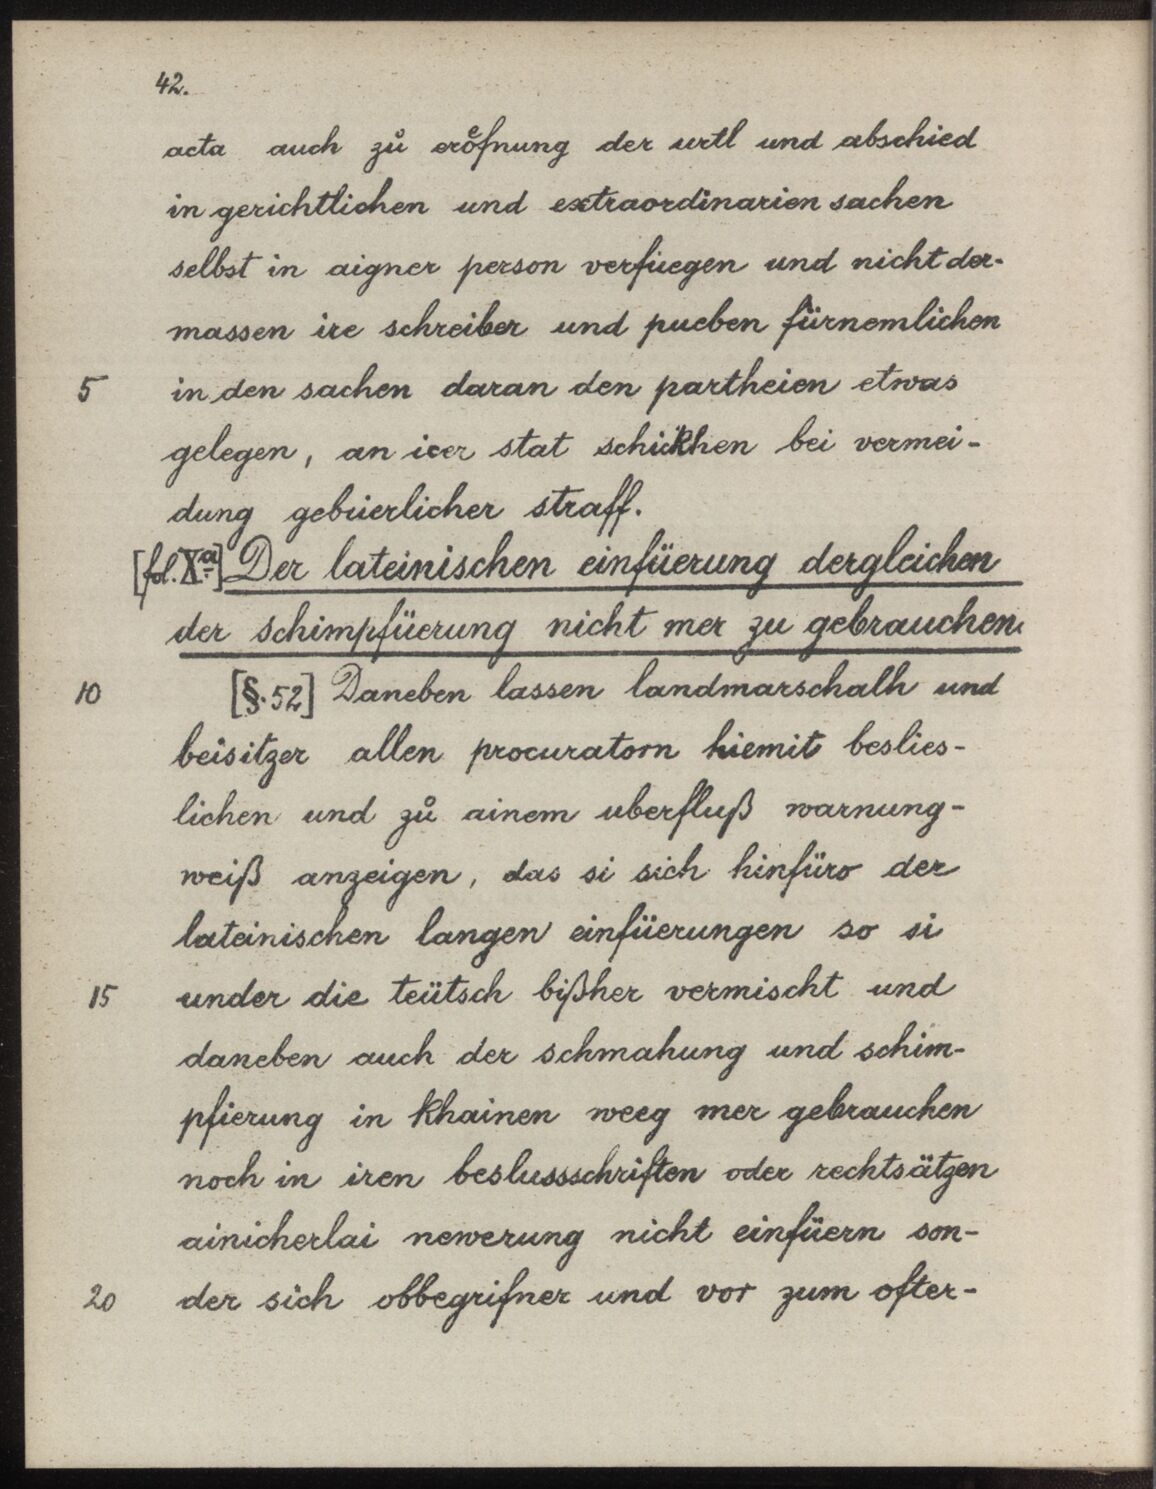 42.
acta auch zů eroͤfnung der urtl und abschied
in gerichtlichen und extraordinarien sachen
selbst in aigner person verfüegen und nicht der-
massen ire schreiber und pueben fürnemlichen
5 in den sachen daran den partheien etwas
gelegen, an irer stat schickhen bei vermei-
dung gebüerlicher straff.
[fol. Xa] Der lateinischen einfüerung dergleichen
der schimpfüerung nicht mer zu gebrauchen.
10 [§. 52] Daneben lassen landmarschalh und
beisitzer allen procuratorn hiemit beslies-
lichen und zů ainem uberfluß warnung-
weiß anzeigen, das si sich hinfüro der
lateinischen langen einfüerungen so si
15 under die teütsch bißher vermischt und
daneben auch der schmahung und schim-
pfierung in khainen weeg mer gebrauchen
noch in iren beslussschriften oder rechtsätzen
ainicherlai newerung nicht einfüern son-
20 der sich obbegrifner und vor zum ofter-